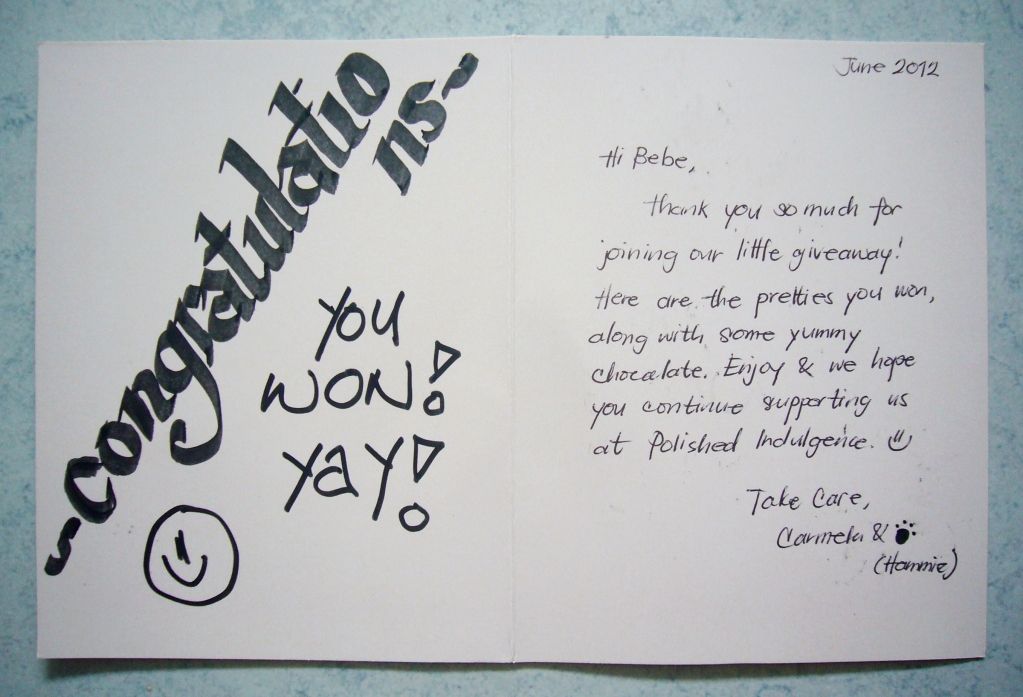 ~congratulatio
ns~
you
WON!
yay!
June 2012
Hi Bebe,
Thank you so much for
joining our little giveaway!
Here are the pretties you won,
along with some yummy
chocolate. Enjoy & we hope
you continue supporting us
at Polished Indulgence.
Take Care,
Carmela &
(Hammie)